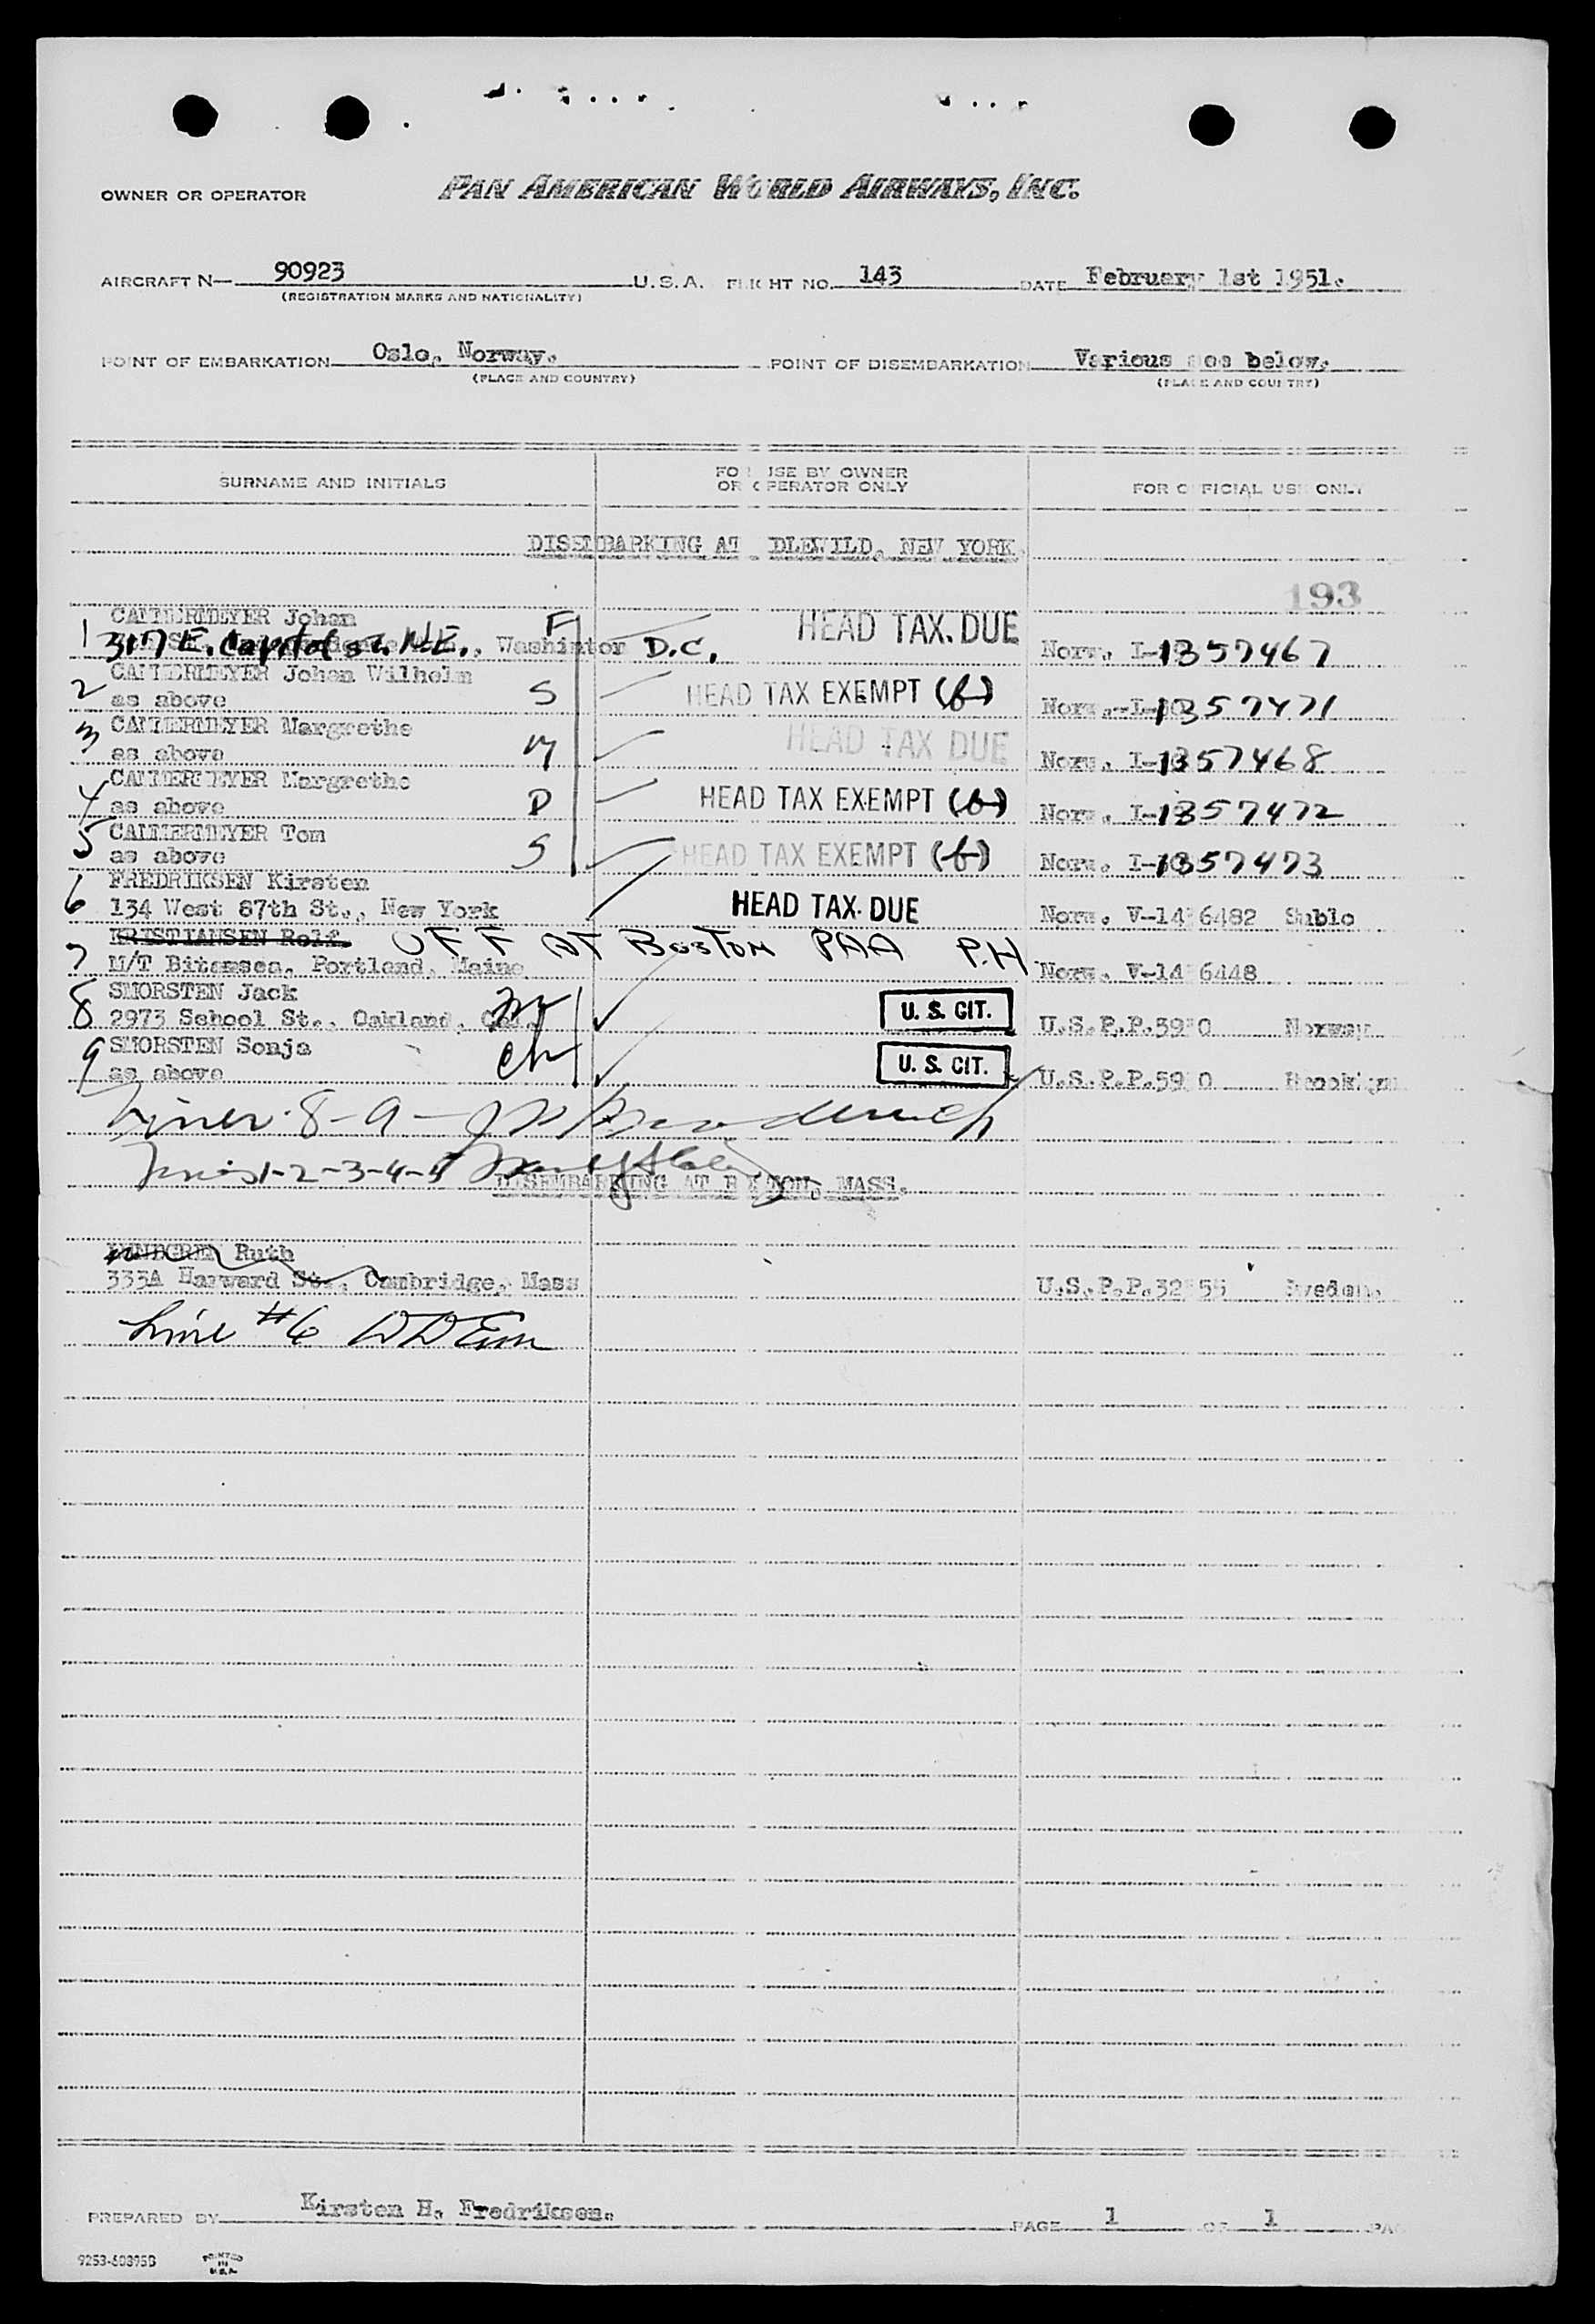 OWNER OR OPERATOR PAN AMERICAN WORLD AIRWAYS, INC.
AIRCRAFT N— 90923 U.S.A. FLIGHT NO. 143 DATE February 1st 1951.
(REGISTRATION MARKS AND NATIONALITY)
POINT OF EMBARKATION Oslo, Norway. POINT OF DISEMBARKATION Various see below.
(PLACE AND COUNTRY) (PLACE AND COUNTRY)
SURNAME AND INITIALS FOR USE BY OWNER OR OPERATOR ONLY FOR OFFICIAL USE ONLY
DISEMBARKING AT IDLEWILD, NEW YORK.
193
CAMMERMEYER Johan F HEAD TAX DUE
1 317 E. Capitol St. N.E., Washinton D.C. Norw. I-1357467
CAMMERMEYER Johan Wilhelm
2 as above S HEAD TAX EXEMPT (b) Norw. I-1357471
3 CAMMERMEYER Margrethe HEAD TAX DUE
as above M Norw. I-1357468
CAMMERMEYER Margrethe
4 as above D HEAD TAX EXEMPT (b) Norw. I-1357472
5 CAMMERMEYER Tom
as above S HEAD TAX EXEMPT (b) Norw. I-1357473
FREDRIKSEN Kirsten
6 134 West 87th St., New York HEAD TAX DUE Norw. V-14 6482 Sublo
KRISTIANSEN Rolf OFF AT BOSTON PAA P.H
7 M/T Bitensea, Portland, Maine Norw. V-14 6448
SMORSTEN Jack
8 2973 School St., Oakland, Cal. U. S. CIT. U.S.P.P.59 0 Norway
9 SMORSTEN Sonja ch
as above U. S. CIT. U.S.P.P.59 0 Brooklyn
Lines 8-9-
Lines 1-2-3-4-5
DISEMBARKING AT BOSTON, MASS.
LUNDGREN Ruth
333A Harward St., Cambridge, Mass U.S.P.P.32 55 Sweden.
Line #6
PREPARED BY Kirsten H. Fredriksen. PAGE 1 OF 1
9253-60395B PRINTED IN U.S.A.